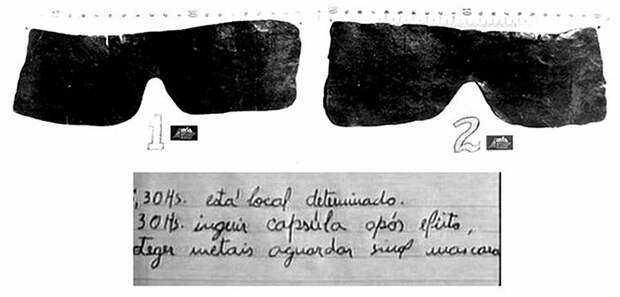 1 2
,30 Hs. está local determinado.
30 Hs. ingerir capsúla após efeito,
teger metais aguardar sinal mascara